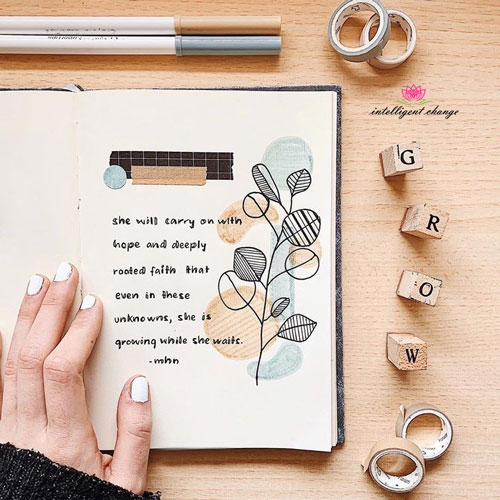 intelligent change
she will carry on with
hope and deeply
rooted faith that
even in these
unknowns, she is
growing while she waits.
-mhn
G
R
O
W